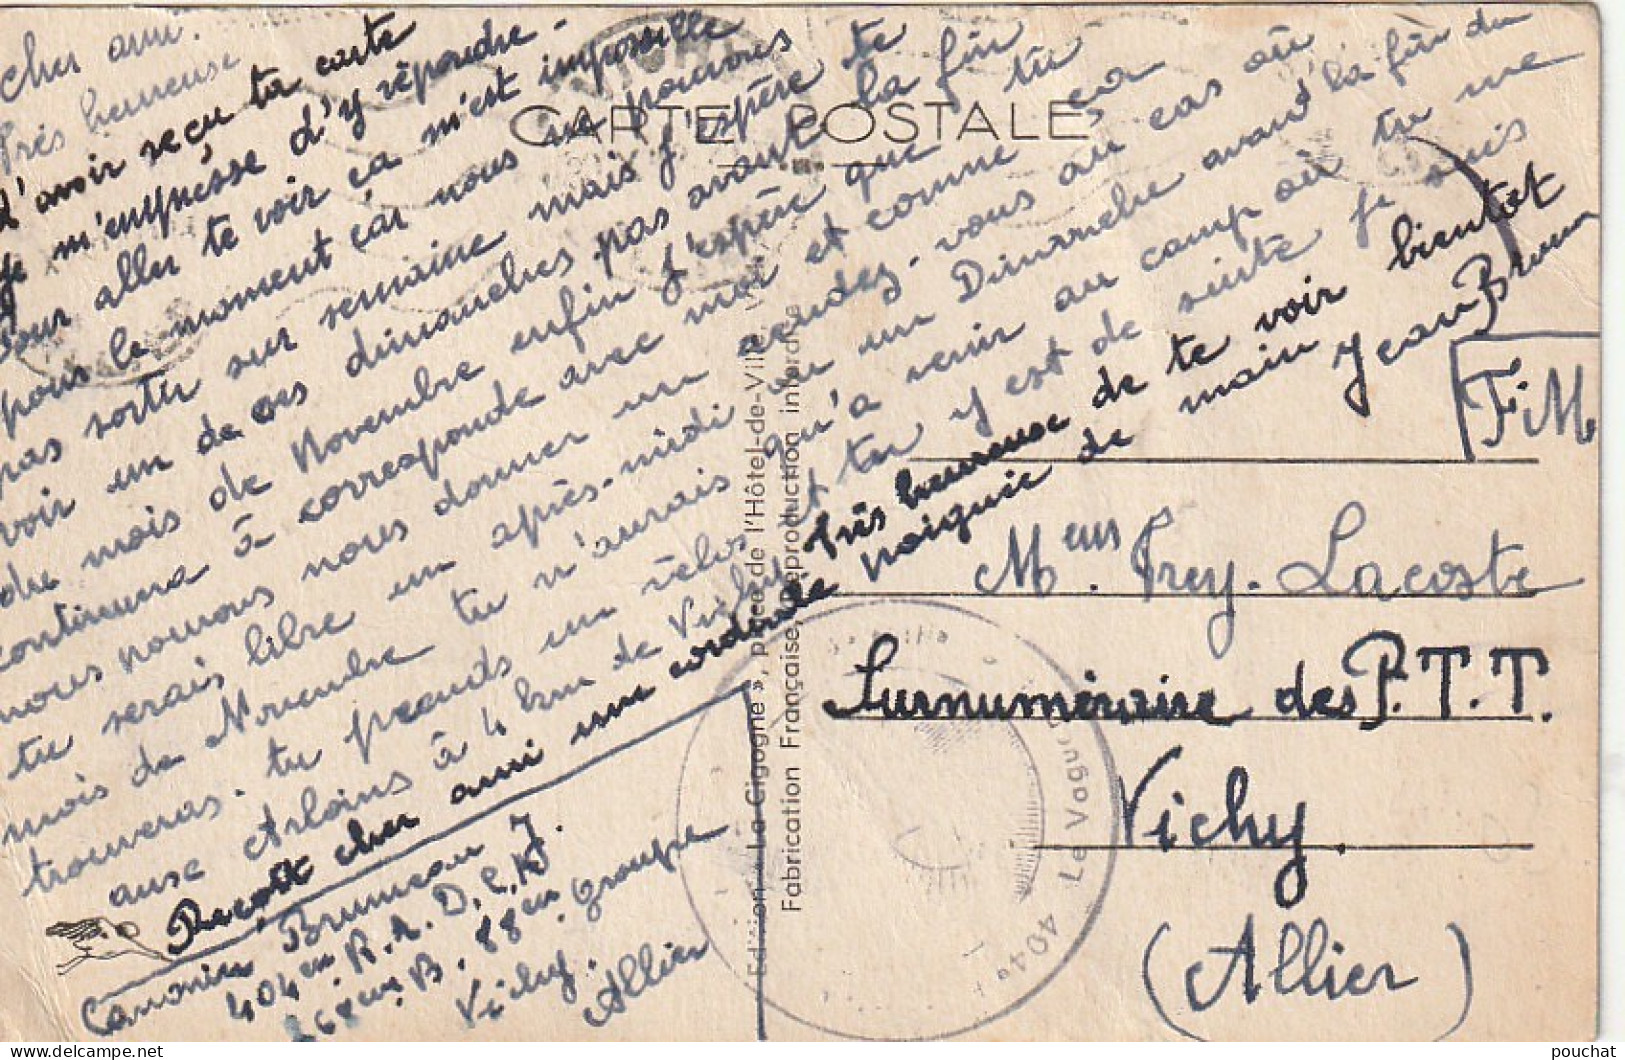 Cher ami.
Très heureuse
d'avoir reçu ta carte
je m'empresse d'y répondre.
Pour aller te voir ça m'est impossible
pour le moment car nous ne pouvons
pas sortir sur semaine mais j'espère te
voir un de ces dimanches pas avant la fin
du mois de Novembre enfin j'espère que tu
continura à correspondre avec moi et comme ça
nous pourrons nous donner un rendez-vous au cas où
tu serais libre un après-midi ou un Dimanche avant la fin du
mois de Novembre tu n'aurais qu'a venir au camp où tu me
trouveras. tu prends un vélos et tu y est de suite je suis
aux Arloins à 4 km de Vichy très heureuse de te voir bientot
Recoit cher ami une cordiale poignée de main Jean Brun
Canonier Bruneau J.
404em R.A.D.C.A
868em B. 88em groupe
Vichy.
Allier
CARTE POSTALE
Edition « La Cigogne », place de l'Hôtel-de-Ville, Vichy
Fabrication Française, Reproduction interdite
F.M.
Meur. Prey-Lacoste
Surnuméraire des P.T.T.
Vichy.
(Allier)
Le Vague
404e
pouchat